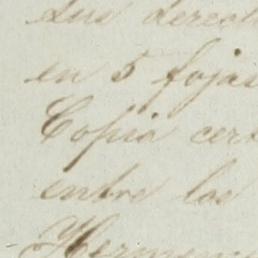 sus derech
en 5 fojas
Copia cert
entre los
Hermene